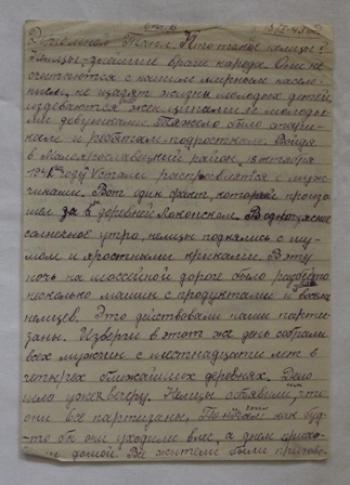 Кто такие немцы?
Немцы-злейшие враги народа. Они не
считаются с нашим мирным населе-
нием, не щадят жизни молодых детей,
издеваются над женщинами и молоды-
ми девушками. Тяжело было стари-
кам и ребятам подросткам. Войдя
в Малоярославецкий район, октября
1941 года стали расправляться с муж-
чинами. Вот один факт, который произо-
шел за деревней В одно
солнечное утро, немцы поднялись с шу-
мом и яростными криками. В эту
ночь на шоссейной дороге было разбито
несколько машин с продуктами и
немцев. Это действовали наши парти-
заны. Изверги в этот же день собрали
всех мужчин с шестнадцати лет в
четырех ближайших деревнях. Дело
шло уже к вечеру. Немцы объявили, что
они все партизаны, как буд-
-то бы они уходили в лес, а днем прихо-
домой. Все жители были пригово-